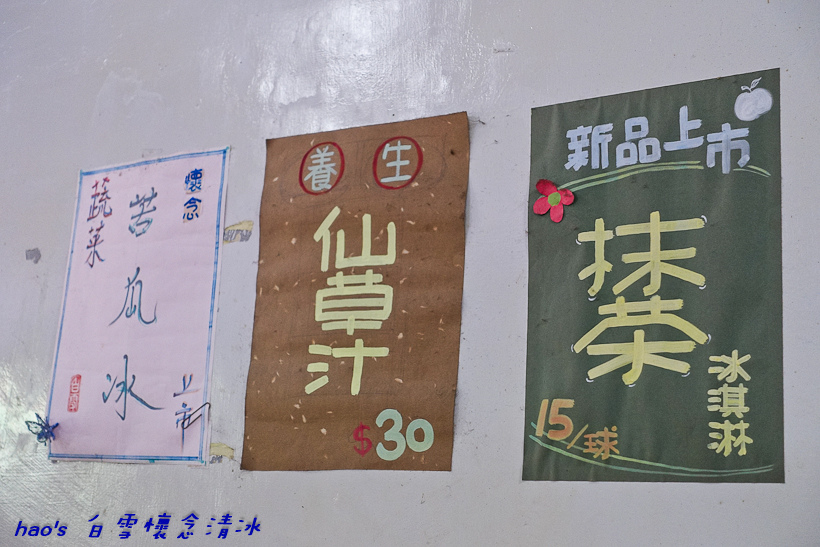 懷念
蔬菜
苦瓜冰
上市
養生
仙草汁
$30
新品上市
抹茶
冰淇淋
15/球
hao's 白雪懷念清冰